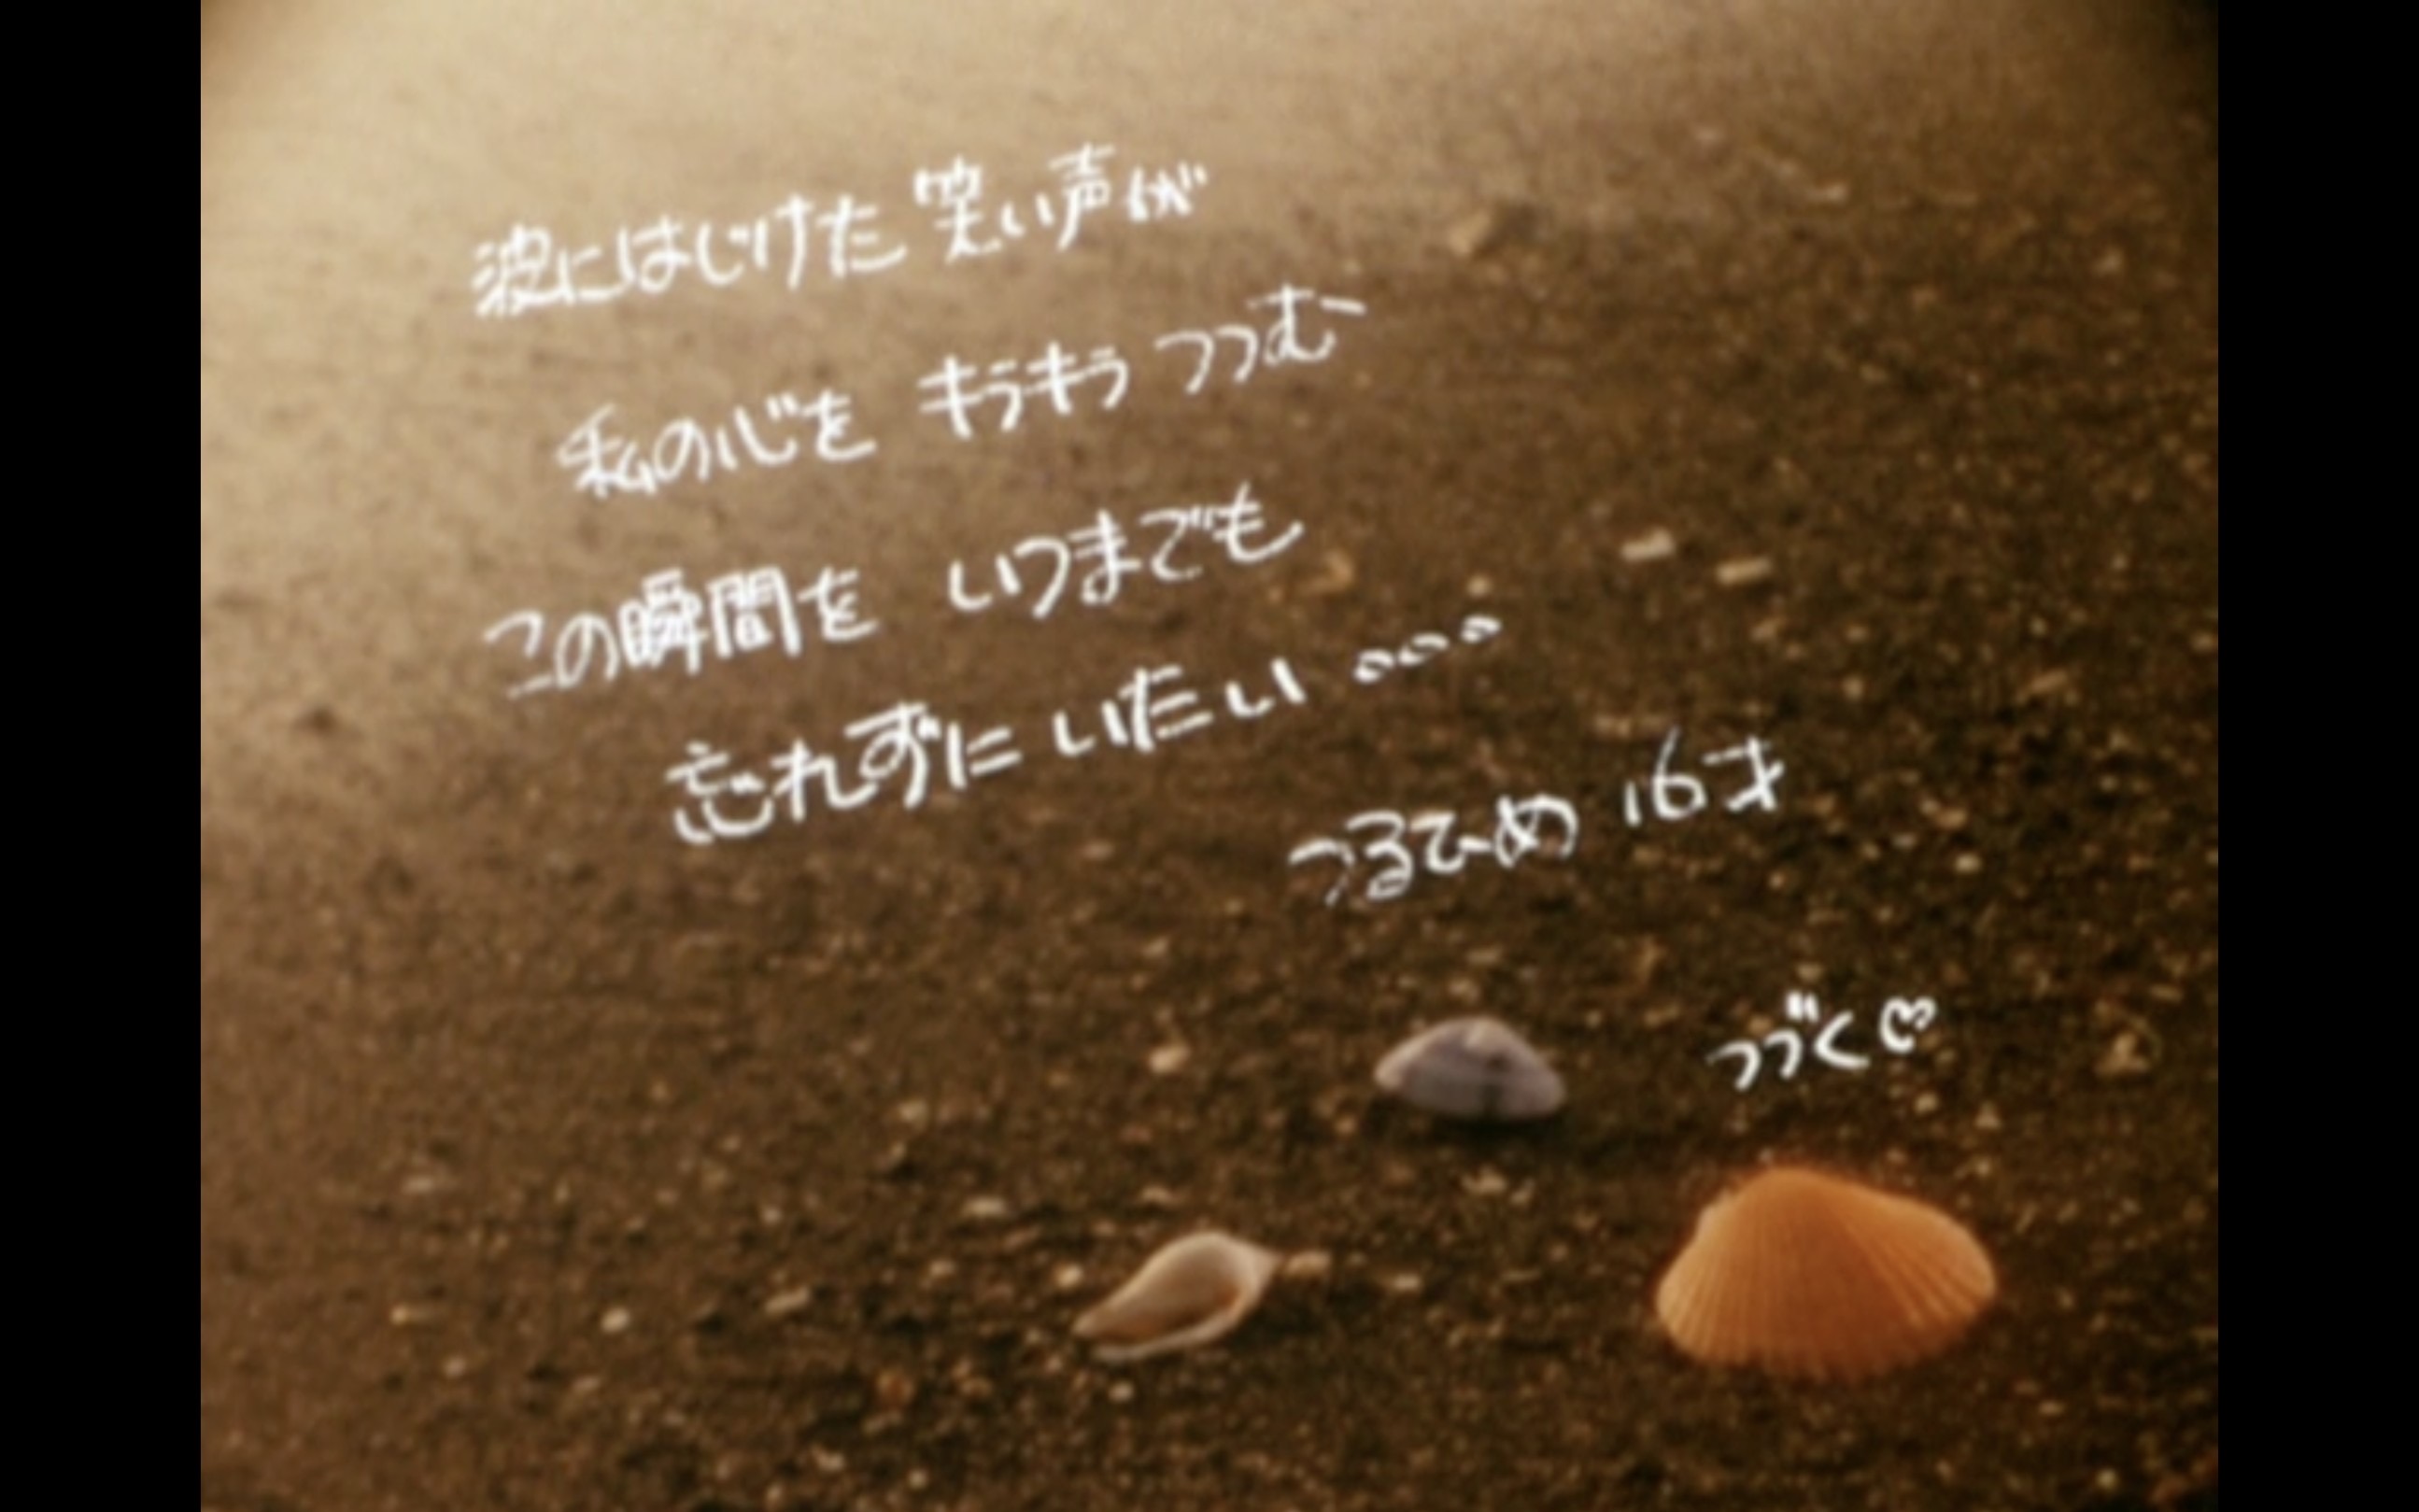 波にはじけた 笑い声が
私の心を キラキラ つつむ
この瞬間を いつまでも
忘れずに いたい 。。。
つるひめ 16才
つづく♡